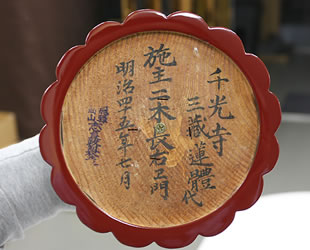 千光寺
三蔵蓮體代
施主二木長右卫門
明治四十五年七月